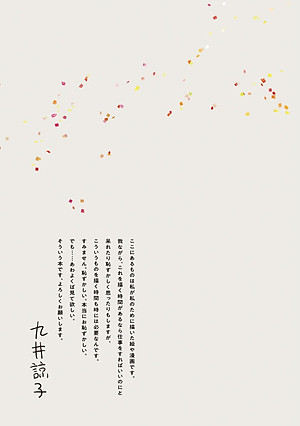 ここにあるものは私が私のために描いた絵や漫画です。
我ながら、これを描く時間があるなら仕事をすればいいのにと
呆れたり恥ずかしく思ったりもしますが、
こういうものを描く時間も時には必要なんです。
すみません。恥ずかしい。本当にお恥ずかしい。
でも……あわよくば見て欲しい。
そういう本です。よろしくお願いします。
九井諒子